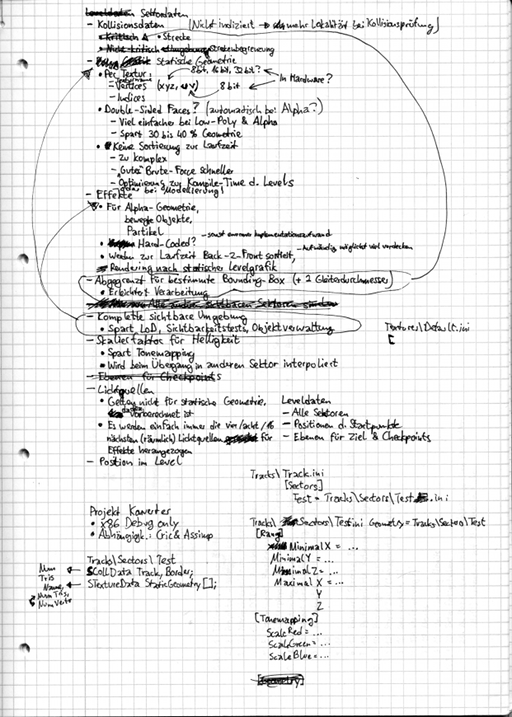 Sektordaten
- Kollisionsdaten (Nicht indiziert → mehr Lokalität bei Kollisionsprüfung)
• Kritisch • Strecke
• Nicht kritisch Streckenbegrenzung
- Statische Geometrie
• Pro Textur: 8 bit, 16 bit, 32 bit? In Hardware?
- Vertices (xyz, uv) 8 bit
- Indices
• Double-Sided Faces? (automatisch bei Alpha?)
- Viel einfacher bei Low-Poly & Alpha
- Spart 30 bis 40 % Geometrie
• Keine Sortierung zur Laufzeit
- Zu komplex
- "Gutes" Brute-Force schneller
- Optimierung zur Kompile-Time d. Levels
bei Modellierung!
- Effekte
• Für Alpha-Geometrie,
bewegte Objekte,
Partikel
- sonst enormer Implementationsaufwand
• Hand-Coded? - Aufwändig, möglichst viel verdecken
• Werden zur Laufzeit Back-2-Front sortiert,
Rendering nach statischer Levelgrafik
- Abgegrenzt für bestimmte Bounding-Box (+ 2 Gleiterdurchmesser)
• Erleichtert Verarbeitung
- Komplette sichtbare Umgebung
• Spart LoD, Sichtbarkeitstests, Objektverwaltung
- Skalierfaktor für Helligkeit
• Spart Tonemapping
• Wird beim Übergang in anderen Sektor interpoliert
- Ebenen für Checkpoints
- Lichtquellen
• Gelten nicht für statische Geometrie,
da vorberechnet ist
• Es werden einfach immer die vier/acht/16
nächsten (räumlich) Lichtquellen für
Effekte herangezogen
- Position im Level
Textures\Default.ini
[
Leveldaten
- Alle Sektoren
- Positionen d. Startpunkte
- Ebenen für Ziel & Checkpoints
Tracks\Track.ini
[Sectors]
Test = Tracks\Sectors\Test.ini
Projekt Konverter
• x86 Debug only
• Abhängigk.: Cric & Assimp
Tracks\Sectors\Test
SCollData Track, Border;
STextureData StaticGeometry[];
Num
Tris
Name,
NumTris,
NumVerts
Tracks\Sectors\Test.ini Geometry = Tracks\Sectors\Test
[Range]
MinimalX = ...
MinimalY = ...
MinimalZ = ...
MaximalX = ...
Y
Z
[Tonemapping]
ScaleRed = ...
ScaleGreen = ...
ScaleBlue = ...
[Geometry]